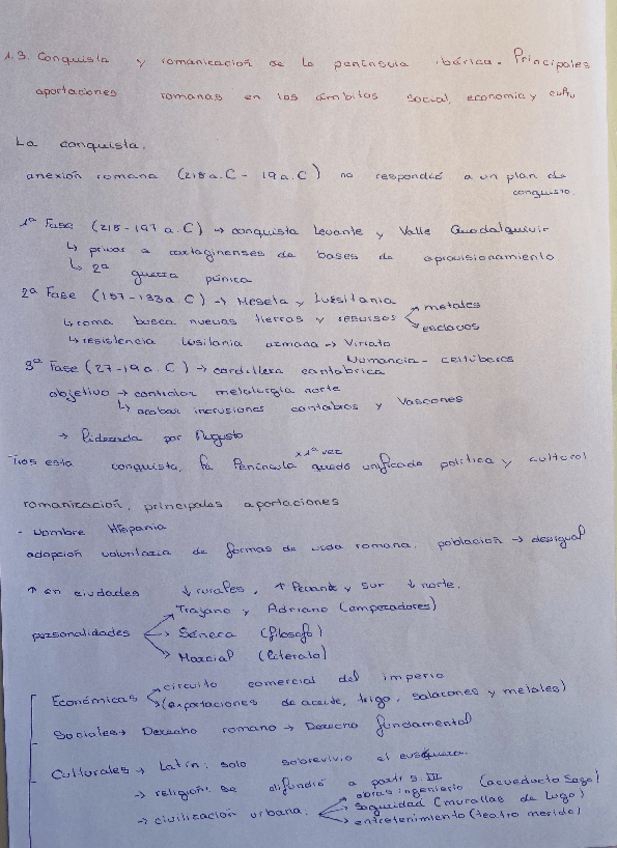 1.3. Conquista y romanización de la península ibérica. Principales
aportaciones romanas en los ámbitos social, economía y cultu
La conquista.
anexión romana (218 a.C - 19 a.C) no respondió a un plan de
conquista.
1ª Fase (218-197 a.C) → conquista Levante y Valle Guadalquivir
↳ privar a cartaginenses de bases de aprovisionamiento
↳ 2ª guerra púnica
2ª Fase (197-133 a C) → Meseta y Lusitania
↳ roma busca nuevas tierras y recursos → metales
→ esclavos
↳ resistencia lusitania → Viriato
Numancia - celtíberos
3ª Fase (27-19 a.C) → cordillera cantabrica
objetivo → controlar metalurgia norte
↳ acabar incrusiones cantabros y Vascones
→ liderada por Augusto
Tras esta conquista, la Península x 1ª vez quedó unificada política y cultural
romanización, principales aportaciones
- Nombre Hispania
adopción voluntaria de formas de vida romana. población → desigual
↑ en ciudades ↓ rurales, ↑ Levante y sur ↓ norte.
personalidades → Trajano y Adriano (emperadores)
→ Séneca (filosofo)
→ Marcial (literato)
Económicas → circuito comercial del imperio
→ (exportaciones de aceite, trigo, salazones y metales)
Sociales → Derecho romano → Derecho fundamental
Culturales → Latín: solo sobrevivio el euskera.
→ religión: se difundió a partir s. III
→ civilización urbana: → obras ingenieria (acueducto Sego)
→ Seguridad (murallas de Lugo)
→ entretenimiento (teatro merida)